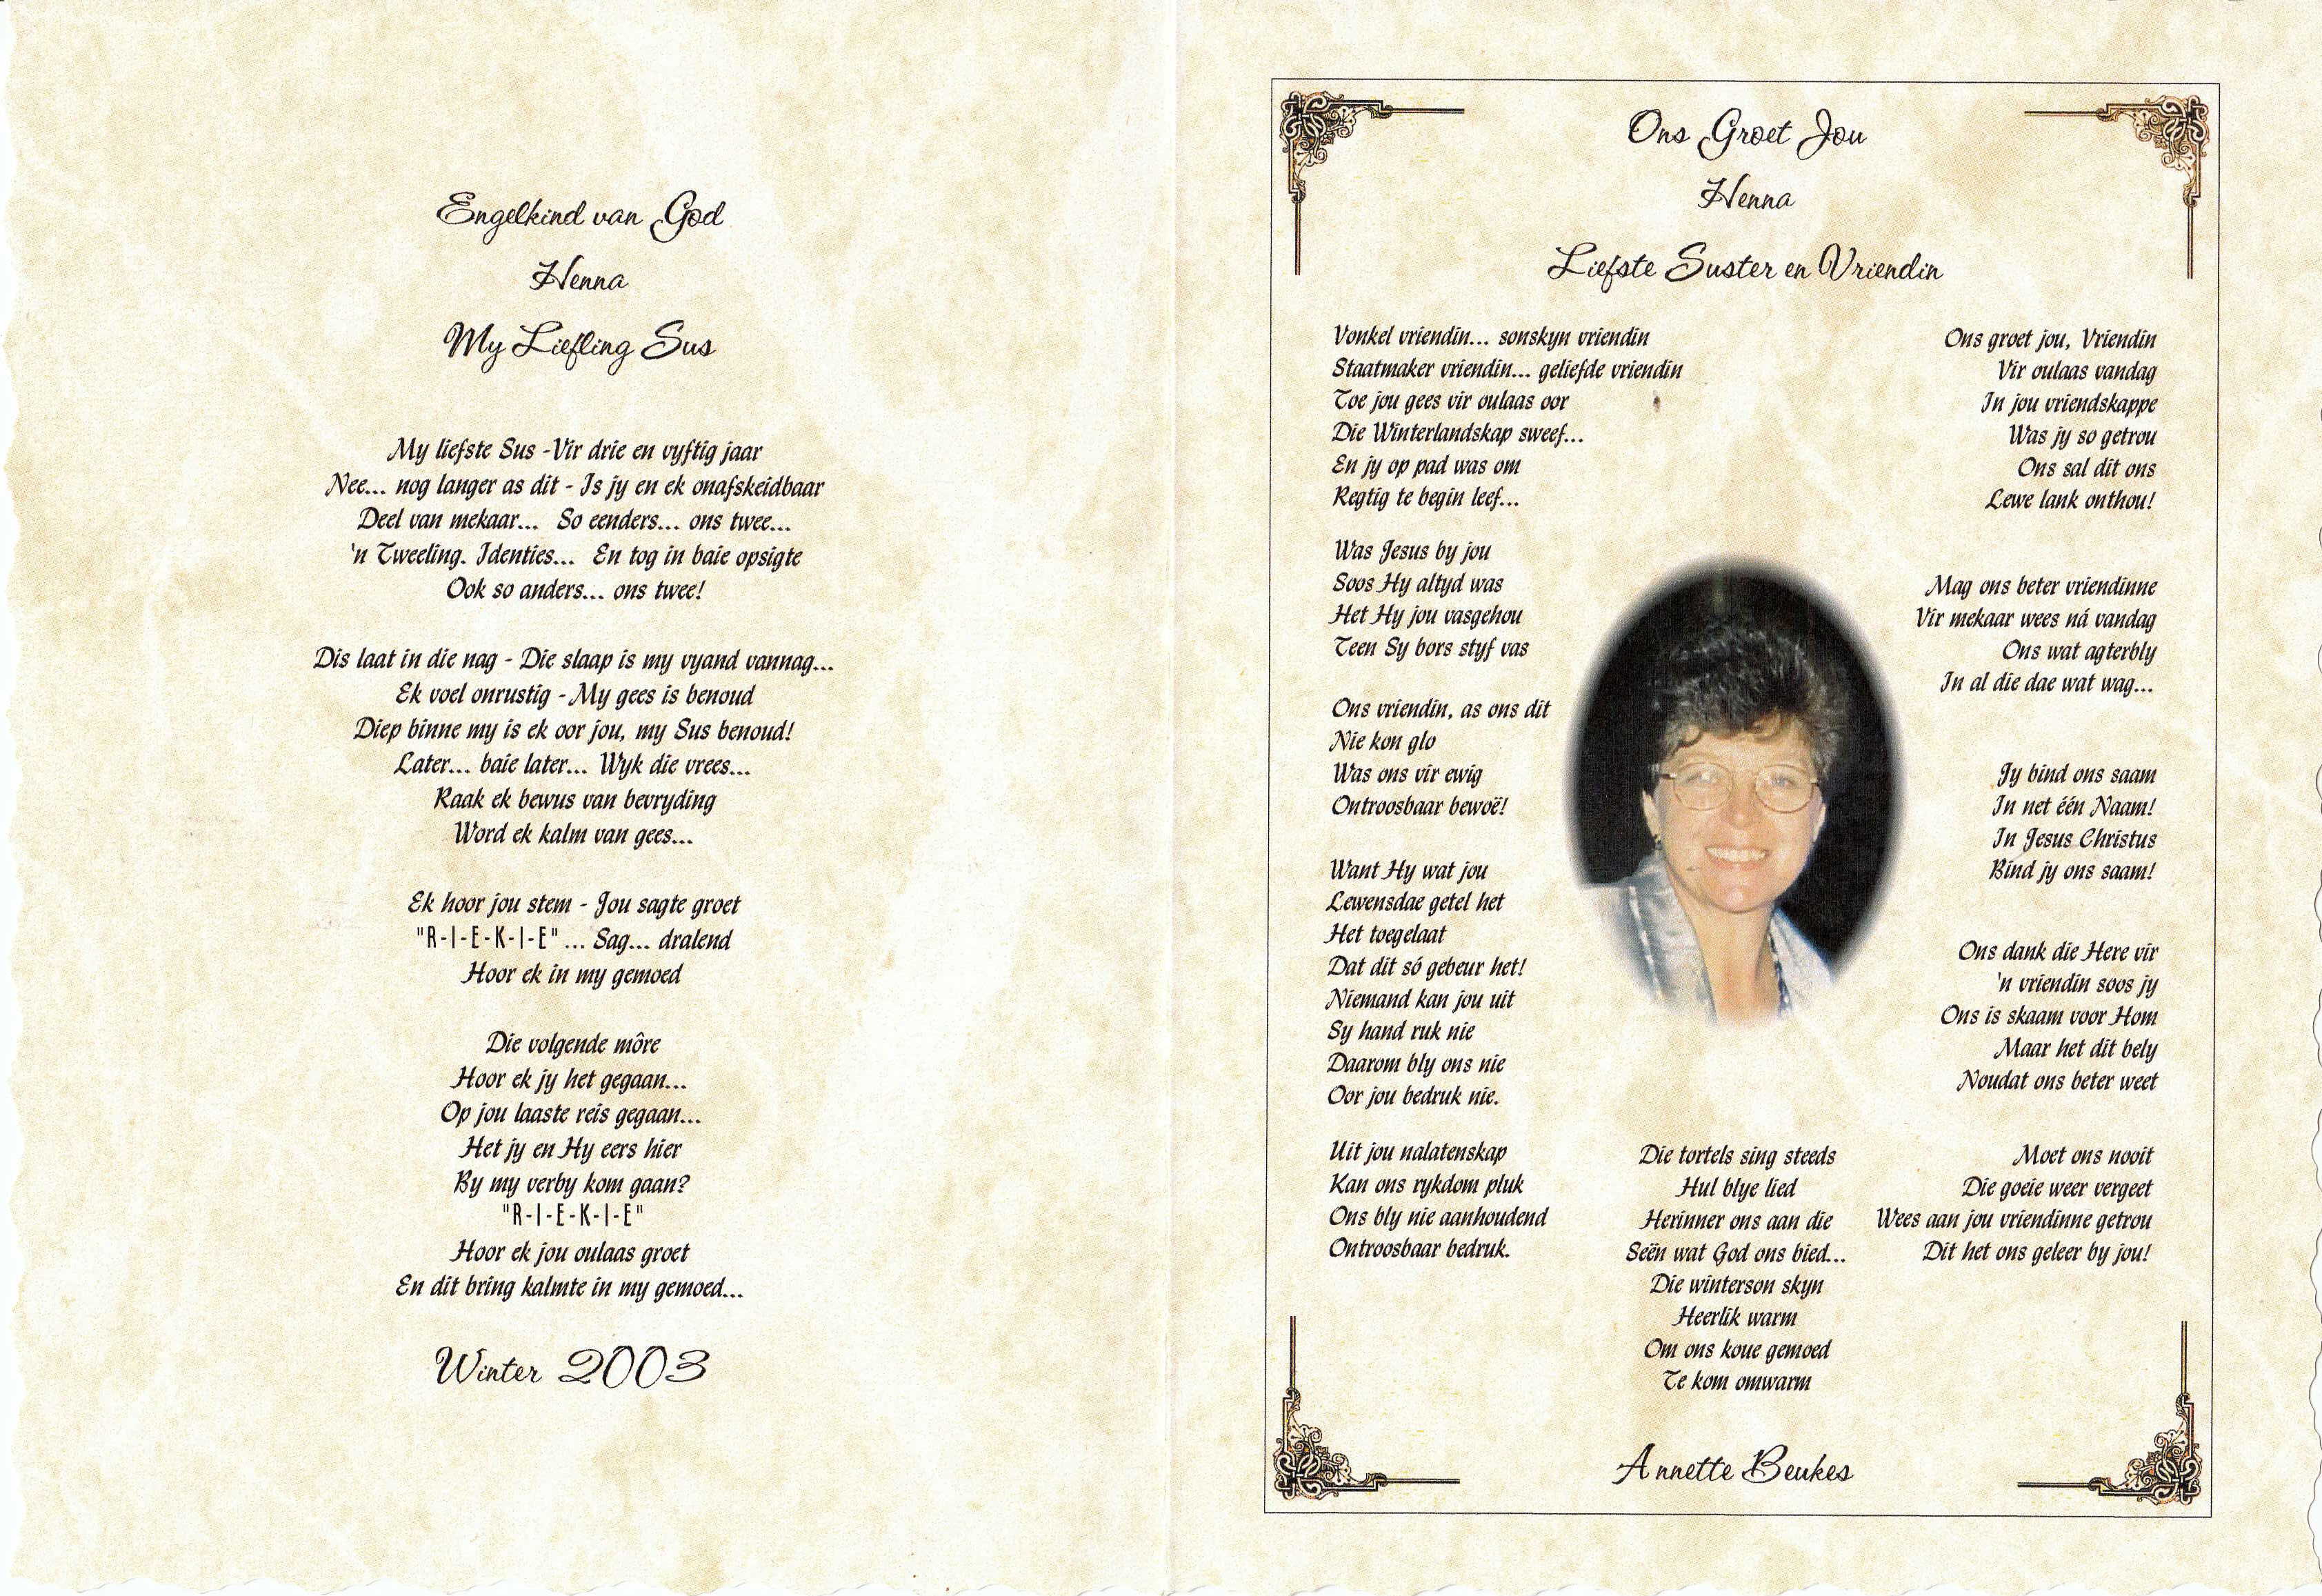 Engelkind van God
Henna
My Liefling Sus
My liefste Sus -Vir drie en vyftig jaar
Nee... nog langer as dit - Is jy en ek onafskeidbaar
Deel van mekaar... So eenders... ons twee...
'n Tweeling. Identies... En tog in baie opsigte
Ook so anders... ons twee!
Dis laat in die nag - Die slaap is my vyand vannag...
Ek voel onrustig - My gees is benoud
Diep binne my is ek oor jou, my Sus benoud!
Later... baie later... Wyk die vrees...
Raak ek bewus van bevryding
Word ek kalm van gees...
Ek hoor jou stem - Jou sagte groet
"R-I-E-K-I-E" ... Sag... dralend
Hoor ek in my gemoed
Die volgende môre
Hoor ek jy het gegaan...
Op jou laaste reis gegaan...
Het jy en Hy eers hier
By my verby kom gaan?
"R-I-E-K-I-E"
Hoor ek jou oulaas groet
En dit bring kalmte in my gemoed...
Winter 2003
Ons Groet Jou
Henna
Liefste Suster en Vriendin
Vonkel vriendin... sonskyn vriendin
Staatmaker vriendin... geliefde vriendin
Toe jou gees vir oulaas oor
Die Winterlandskap sweef...
En jy op pad was om
Regtig te begin leef...
Was Jesus by jou
Soos Hy altyd was
Het Hy jou vasgehou
Teen Sy bors styf vas
Ons vriendin, as ons dit
Nie kon glo
Was ons vir ewig
Ontroosbaar bewoë!
Want Hy wat jou
Lewensdae getel het
Het toegelaat
Dat dit só gebeur het!
Niemand kan jou uit
Sy hand ruk nie
Daarom bly ons nie
Oor jou bedruk nie.
Uit jou nalatenskap
Kan ons rykdom pluk
Ons bly nie aanhoudend
Ontroosbaar bedruk.
Die tortels sing steeds
Hul blye lied
Herinner ons aan die
Seën wat God ons bied...
Die winterson skyn
Heerlik warm
Om ons koue gemoed
Te kom omwarm
Ons groet jou, Vriendin
Vir oulaas vandag
In jou vriendskappe
Was jy so getrou
Ons sal dit ons
Lewe lank onthou!
Mag ons beter vriendinne
Vir mekaar wees ná vandag
Ons wat agterbly
In al die dae wat wag...
Jy bind ons saam
In net één Naam!
In Jesus Christus
Bind jy ons saam!
Ons dank die Here vir
'n vriendin soos jy
Ons is skaam voor Hom
Maar het dit bely
Noudat ons beter weet
Moet ons nooit
Die goeie weer vergeet
Wees aan jou vriendinne getrou
Dit het ons geleer by jou!
Annette Beukes